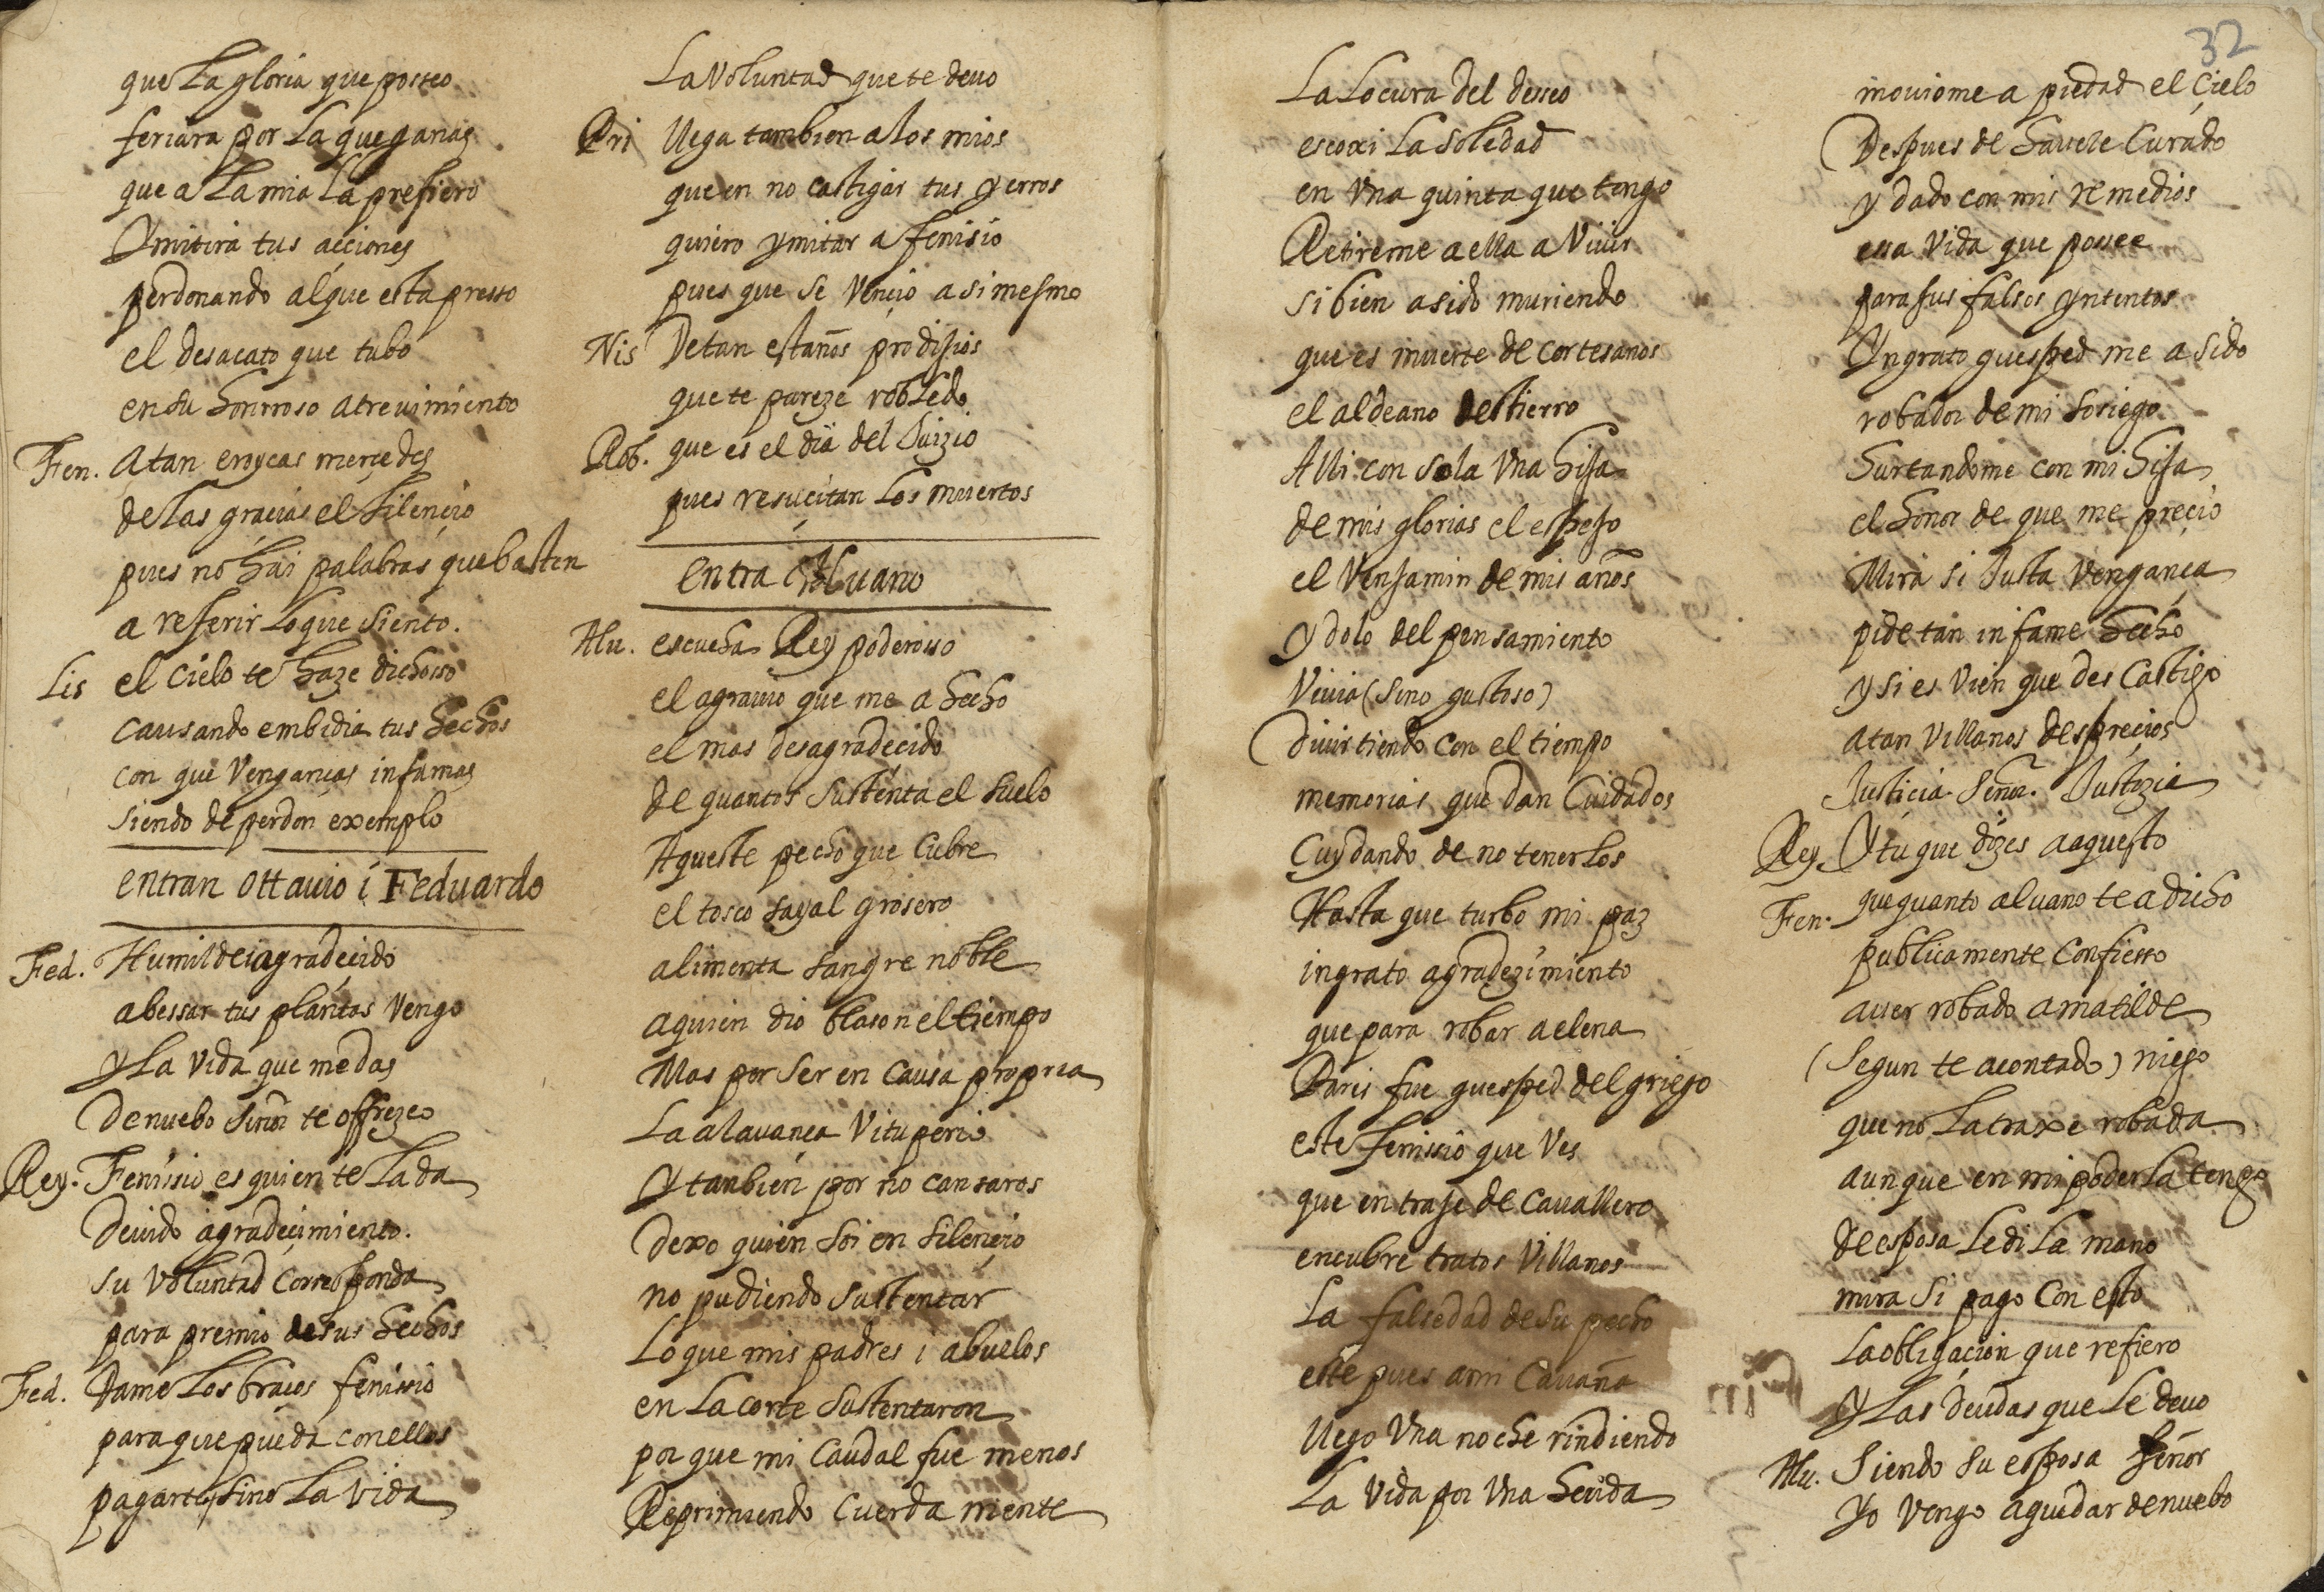 que La gloria que posseo
feriara por La que ganas
que a La mia La prefiero
Ymitira tus acciones
perdonando al que esta presso
el desacato que tubo
en su honrroso atrevimiento
Fen. A tan eroycas merçedes
de Las gracias el silençio
pues no hai palabras que basten
a referir Lo que siento.
Lis el cielo te haze dichosso
causando embidia tus hechos
con que Vengancas infamas
siendo de perdon exemplo
entran Ottavio i Feduardo
Fed. Humilde i agradeçido
a bessar tus plantas Vengo
y La Vida que me das
de nuebo señor te offrezco
Rey. Fenissio es quien te La da
devido agradeçimiento.
su Voluntad corresponda
para premio de sus hechos
Fed. Dame Los braços fenissio
para que pueda con ellos
pagarte sino La Vida
La Voluntad que te devo
Pri llega tambien a los mios
que en no castigar tus yerros
quiero ymitar a fenisio
pues que se Vençio a si mesmo
Nis De tan estaños prodijios
que te pareze robledo
Rob. que es el dia del Juizio
pues resuçitan Los muertos
entra Aluano
Alu. escucha Rey poderosso
el agravio que me a hecho
el mas desagradecido
de quantos sustenta el suelo
Aqueste pecho que Cubre
el tosco sayal grosero
alimenta sangre noble
a quien dio blason el tiempo
Mas por ser en causa propria
La alavança Vituperio
Y tanbien por no cansaros
dexo quien soi en silençio
no pudiendo sustentar
Lo que mis padres i abuelos
en La corte sustentaron
por que mi Caudal fue menos
Reprimiendo cuerda mente
32
La Locura del desseo
escoxi La soledad
en Vna quinta que tengo
Retireme a ella a Viuir
si bien a sido muriendo
que es muerte de cortesanos
el aldeano destierro
Alli con sola Vna hija
de mis glorias el espejo
el Venjamin de mis años
ydolo del pensamiento
Viuia (sino gustoso)
diuirtiendo con el tiempo
memorias que dan Cuidados
Cuydando de no tenerlos
Hasta que turbo mi paz
ingrato agradezimiento
que para robar a elena
Paris fue guesped del griego
este fenissio que Ves
que en traje de cavallero
encubre tratos Villanos
La falsedad de su pecho
este pues a mi Cavaña
llego Vna noche rindiendo
La Vida por Vna herida
mouiome a piedad el Çielo
Despues de havele Curado
y dado con mis remedios
essa Vida que possee
para sus falsos yntentos
Yngrato guesped me a sido
robador de mi sosiego
hurtandome con mi hija
el honor de que me preçio
Mira si Justa Vengança
pide tan infame hecho
y si es Vien que des Castigo
a tan Villanos despreçios
Justiçia señor. Justizia
Rey. Y tu que dizes a aquesto
Fen. que quanto aluano te a dicho
publicamente Confiesso
auer robado a matilde
(segun te a contado) niego
que no La traxe robada
aunque en mi poder La tengo
de esposa Le di La mano
mira si pago Con esto
La obligaçion que refiero
y Las deudas que Le devo
Alu. Siendo su esposa señor
Yo Vengo a quedar de nuebo